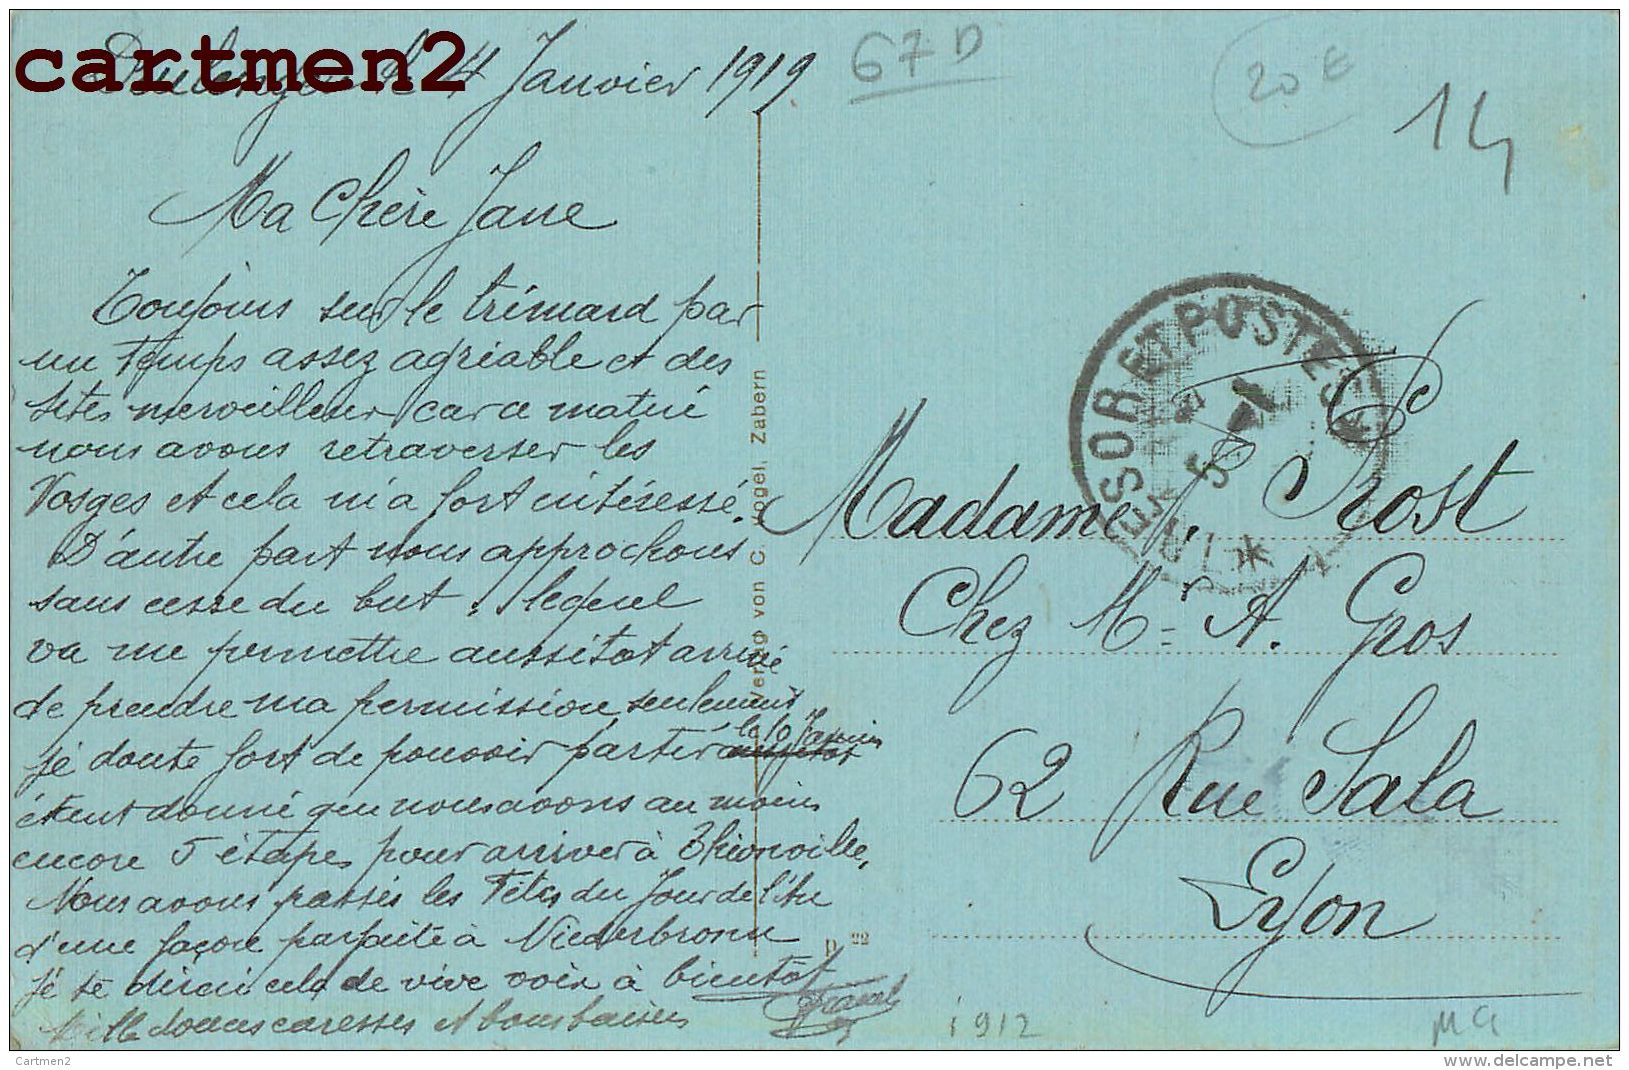 cartmen2
le 4 Janvier 1919
67 D
20 €
14
Ma Chère Jane
Toujours sur le trimard par
un temps assez agréable et des
sites merveilleux car ce matin
nous avons retraverser les
Vosges et cela m'a fort intéressé.
D'autre part nous approchons
sans cesse du but, lequel
va me permettre aussitôt arrivé
de prendre ma permission seulement
je doute fort de pouvoir partir le 10 Janvier
étant donné que nous avons au moins
encore 5 étapes pour arriver à Thionville,
Nous avons passés les Fêtes du Jour de l'An
d'une façon parfaite à Niederbronn
Je te dirai cela de vive voix à bientôt
Mille douces caresses et bons baisers
Verlag von C. Vogel, Zabern
D 22
TRESOR ET POSTES
5
Madame P. Prost
Chez Mr A. Gros
62 Rue Sala
Lyon
1912
Cartmen2
www.delcampe.net